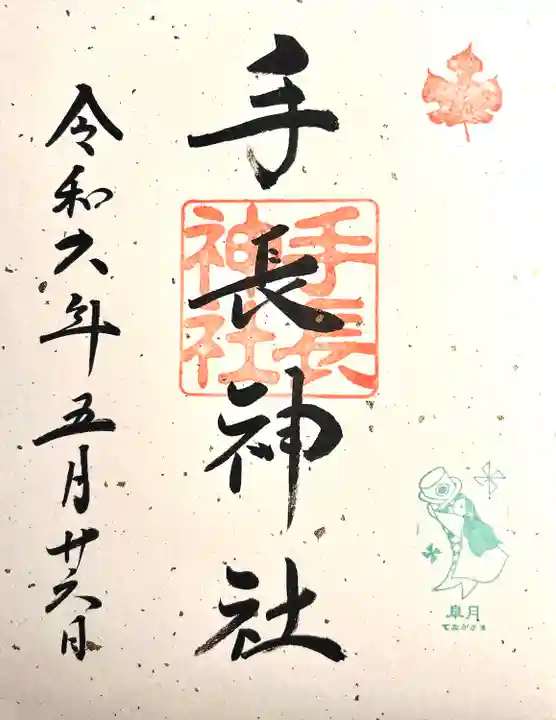 手長神社
手長
神社
皐月
てながさま
令和六年五月廿六日